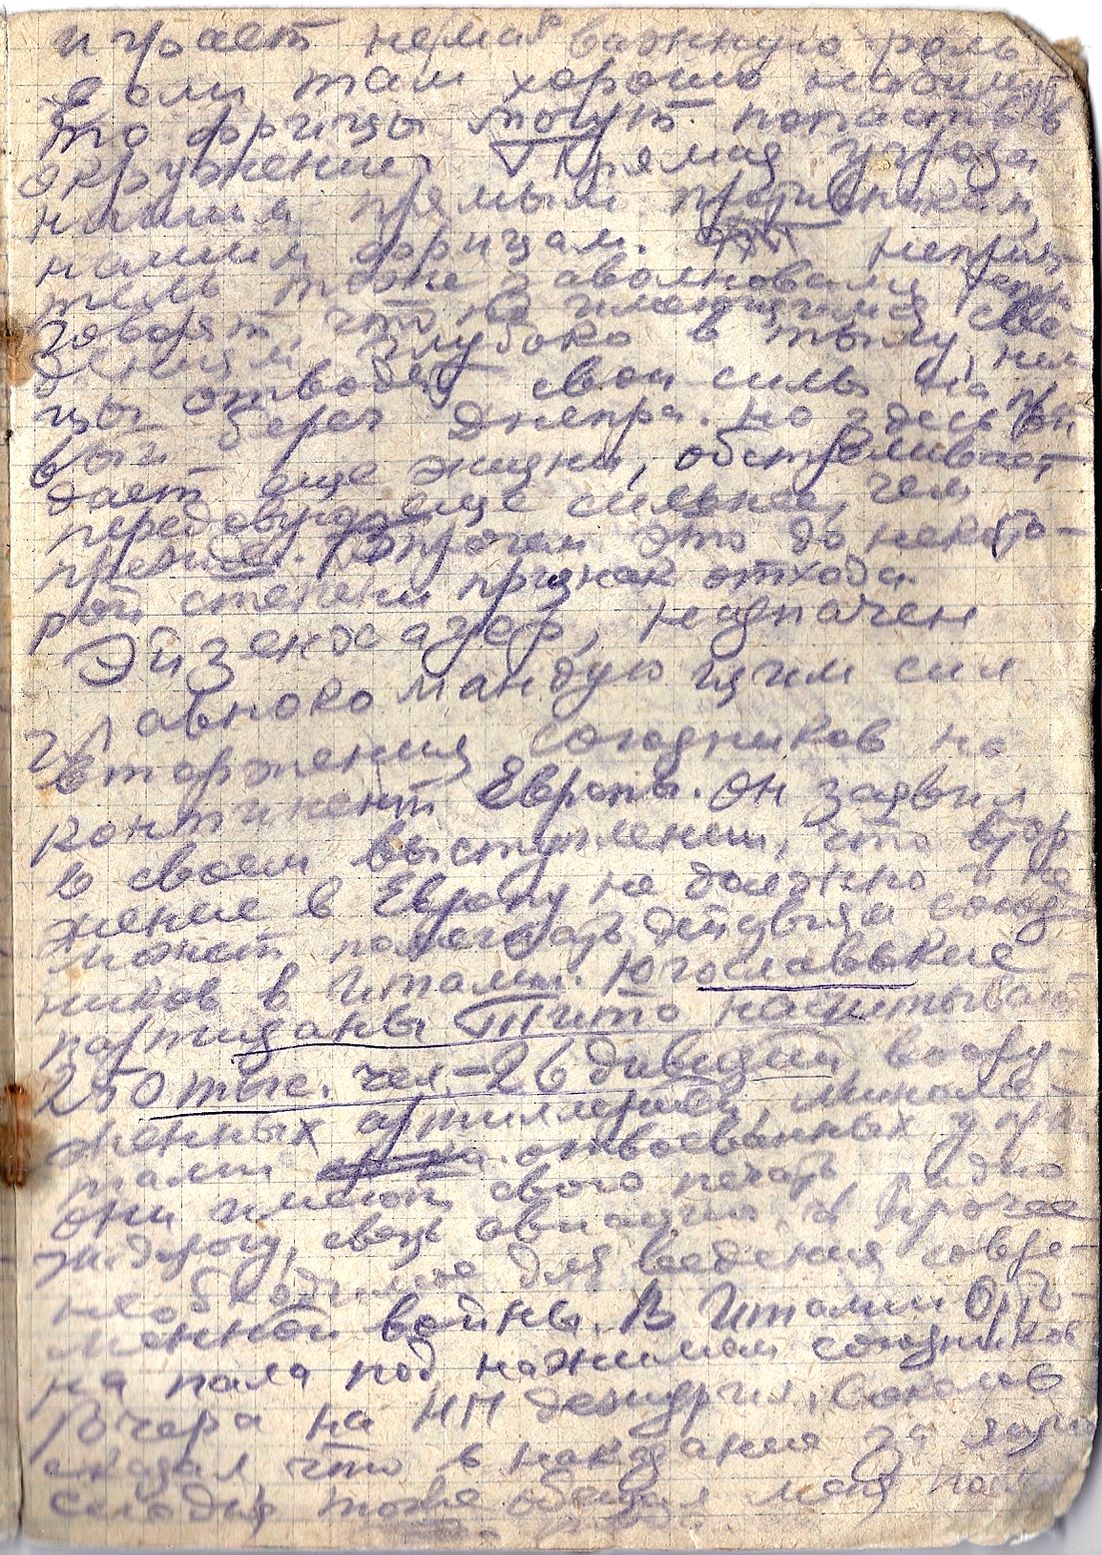 играет немаловажную роль
Если там хорошо
то фрицы могут попасть в
окружение. Прямая угроза
нашим прямым противникам,
нашим фрицам. неприя-
тель тоже заволновался,
говорят, что по имеющимся све-
дениям глубоко в тылу, нем
цы отводят свои силы на пра
вый берег Днепра. Но здесь он
дает еще жизни, обстреливает
передовую еще сильнее, чем
прежде. Впрочем это до некото-
рой степени признак отхода.
Эйзенхауер, назначен
главнокомандующим сил
вторжения союзников на
континент Европы. Он заявил
в своем выступлении, что втор
жение в Европу не должно и не
может помешать действия союз-
ников в Италии. Югославские
партизаны Тито насчитывают
250 тыс. чел - 26 дивизий воору-
женных артиллерией, миноме-
тами отвоеванных у
они имеют свою печать, радио
ж. дорогу, свою авиацию и прочее
необходимое для ведения совре-
менной войны. В Италии Орто-
на пала под нажимом союзников
Вчера на НП дежурил, Соколов
сказал что в наказание за
тоже обещал меня